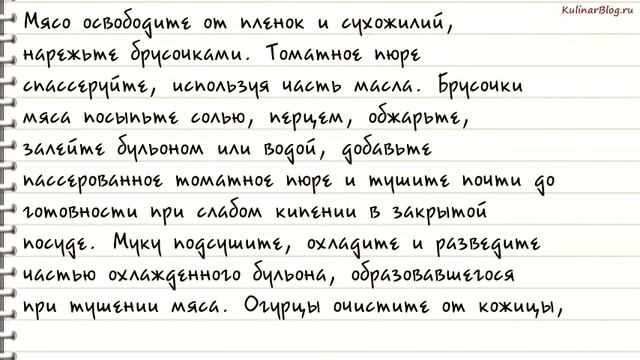 KulinarBlog.ru
Мясо освободите от пленок и сухожилий,
нарежьте брусочками. Томатное пюре
спассеруйте, используя часть масла. Брусочки
мяса посыпьте солью, перцем, обжарьте,
залейте бульоном или водой, добавьте
пассерованное томатное пюре и тушите почти до
готовности при слабом кипении в закрытой
посуде. Муку подсушите, охладите и разведите
частью охлажденного бульона, образовавшегося
при тушении мяса. Огурцы очистите от кожицы,